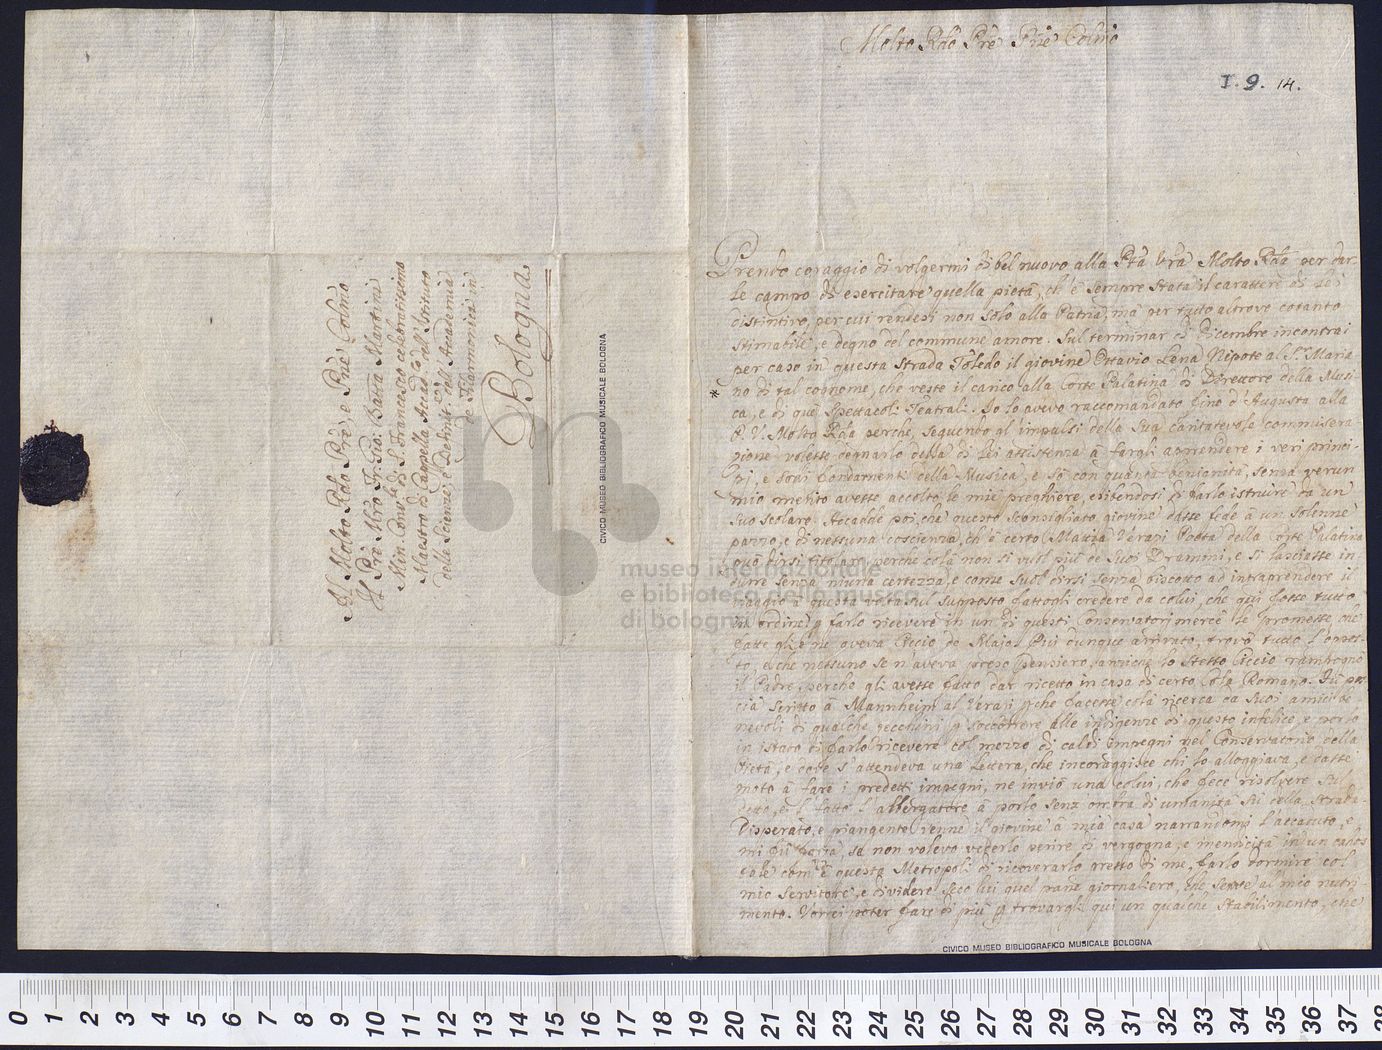 Al Molto Rdo Prê, e Pnê Colmo
Il Prê Mro Fr. Gio: Batta Martini
Min. Conv.le di S. Francesco celebratissimo
Maestro di Cappella Accad.co dell'Istituto
delle Scienze, e Definit.re dell'Accademia
de Filarmonici in
Bologna
CIVICO MUSEO BIBLIOGRAFICO MUSICALE BOLOGNA
Molto Rdo Prê Pnê Colmo
I. 9. 14.
Prendo coraggio di volgermi di bel nuovo alla Ptà Vrã Molto Rda per dar-
le campo di esercitare quella pietà, ch'è sempre stata il carattere di Lei
distintivo, per cui rendesi non solo alla Patria, mà per tutto altrove cotanto
stimabile, e degno del commune amore. Sul terminar di Dicembre incontrai
per caso in questa Strada Toledo il giovine Ottavio Lena Nipote al S.r Maria-
* no di tal cognome, che veste il carico alla Corte Palatina di Direttore della Musi-
ca, e di quei Spettacoli Teatrali. Io lo avevo raccomandato fino d'Augusta alla
P. V. Molto Rda perche, seguendo gl'impulsi della Sua caritatevole commisera-
zione volesse degnarlo della di Lei assistenza à fargli apprendere i veri princi-
pj, e sodi fondamenti della Musica, e sò con quanta benignità, senza verun
mio merito avesse accolto le mie preghiere, esibendosi di farlo istruire da un
suo scolaro. Accadde poi, che questo sconsigliato giovine dasse fede à un solenne
pazzo, e di nessuna coscienza, ch'è certo Mattia Verazi Poeta della Corte Palatina
può dirsi titolare, perche colà non si vuol più de Suoi Drammi, e si lasciasse in-
durre senza niuna certezza, e come Suol dirsi senza biscotto ad intraprendere il
viaggio à questa volta sul supposto fattogli credere da colui, che qui fosse tutto
in ordine p farlo ricevere in un di questi Conservatorj mercè le promesse che
fatte gli e ne aveva Ciccio de Majo. Qui dunque arrivato, trovò tutto l'oppos-
to, e che nessuno se n'aveva preso pensiero, anziche lo stesso Ciccio rampognò
il Padre, perche gli avesse fatto dar ricetto in casa di certo Cola Romano. Fù po-
cia scritto à Mannheim al Verazi p che facesse colà ricerca da suoi amici be-
nevoli di qualche zecchini p soccorrere alle indigenze di questo infelice, e porlo
in istato di farlo ricevere col mezzo di caldi impegni nel Conservatorio della
Pietà, e dove s'attendeva una Lettera, che incoraggisce chi lo alloggiava, e dasse
moto à fare i predetti impegni, ne inviò una colui, che fece risolvere sul
detto, e'l fatto l'albergatore à porlo senz'ombra di umanità sù della strada.
Disperato, e piangente venne il giovine à mia casa narrandomi l'accaduto, e
mi fù forza, se non volevo vederlo perire di vergogna, e mendicità in un caos
tale com'è questa Metropoli di ricoverarlo presso di me, farlo dormire col
mio Servitore, e dividere seco lui quel pane giornaliero, che serve al mio nutri-
mento. Vorrei poter fare di più p trovargli qui un qualche stabilimento, che
CIVICO MUSEO BIBLIOGRAFICO MUSICALE BOLOGNA
museo internazionale
e biblioteca della musica
di bologna
0 1 2 3 4 5 6 7 8 9 10 11 12 13 14 15 16 17 18 19 20 21 22 23 24 25 26 27 28 29 30 31 32 33 34 35 36 37 38